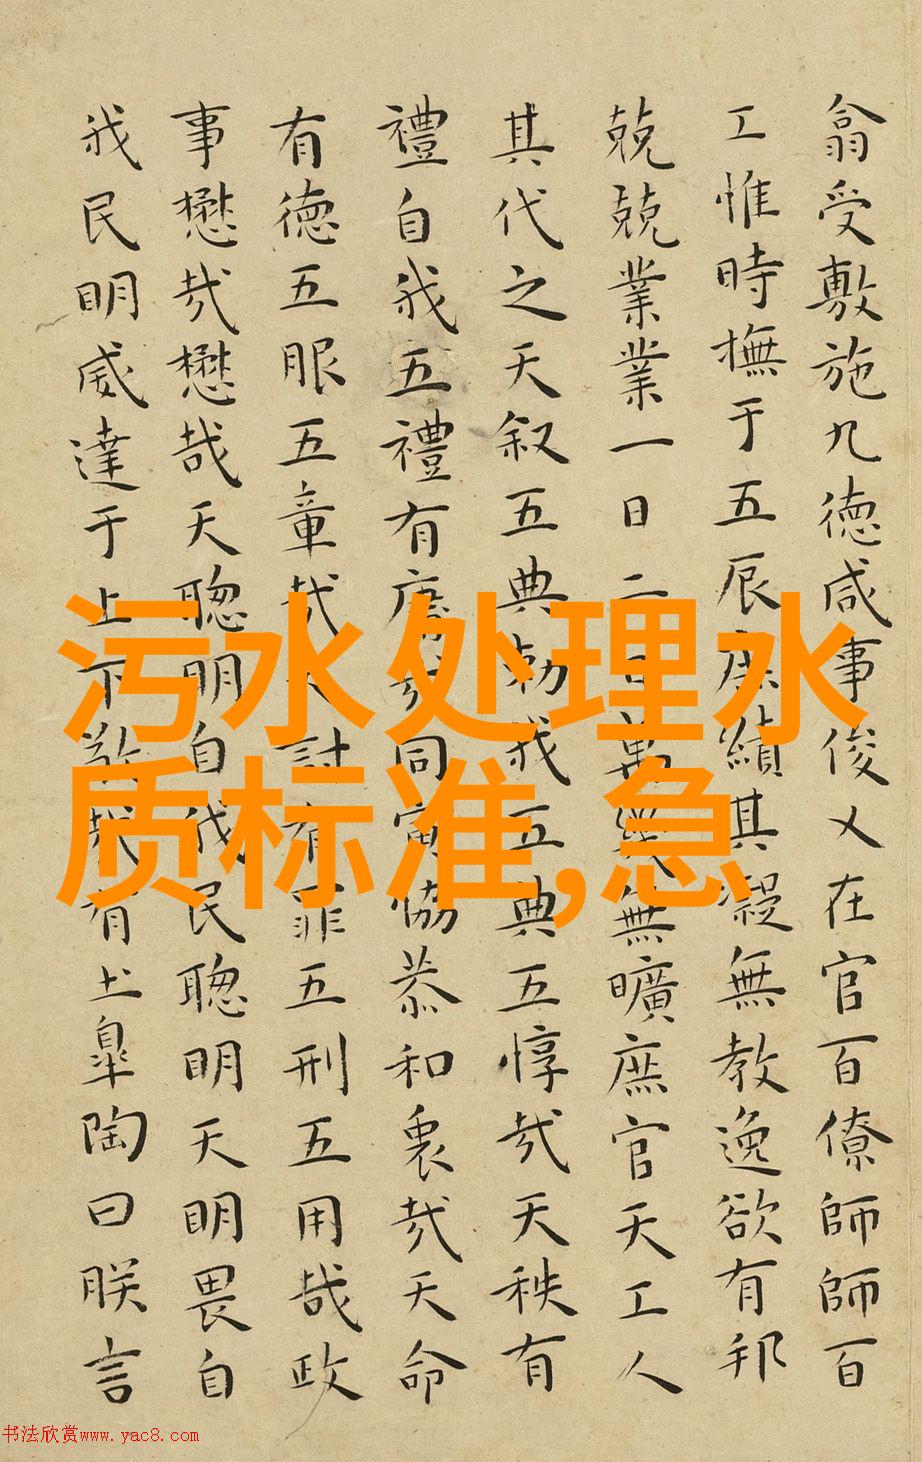 翕受敷施九德咸事俊乂在官百僚師師百
工惟時撫于五辰庶績其凝無教逸欲有邦
兢兢業業一日二日萬幾無曠庶官天工人
其代之天叙五典勑我五典五惇哉天秩有
禮自我五禮有庸哉同寅協恭和衷哉天命
有德五服五章哉天討有罪五刑五用哉政
事懋哉懋哉天聰明自我民聰明天明畏自
我民明威達于上下敬哉有土皐陶曰朕言
污水处理水
质标准,急
书法欣赏www.yac8.com